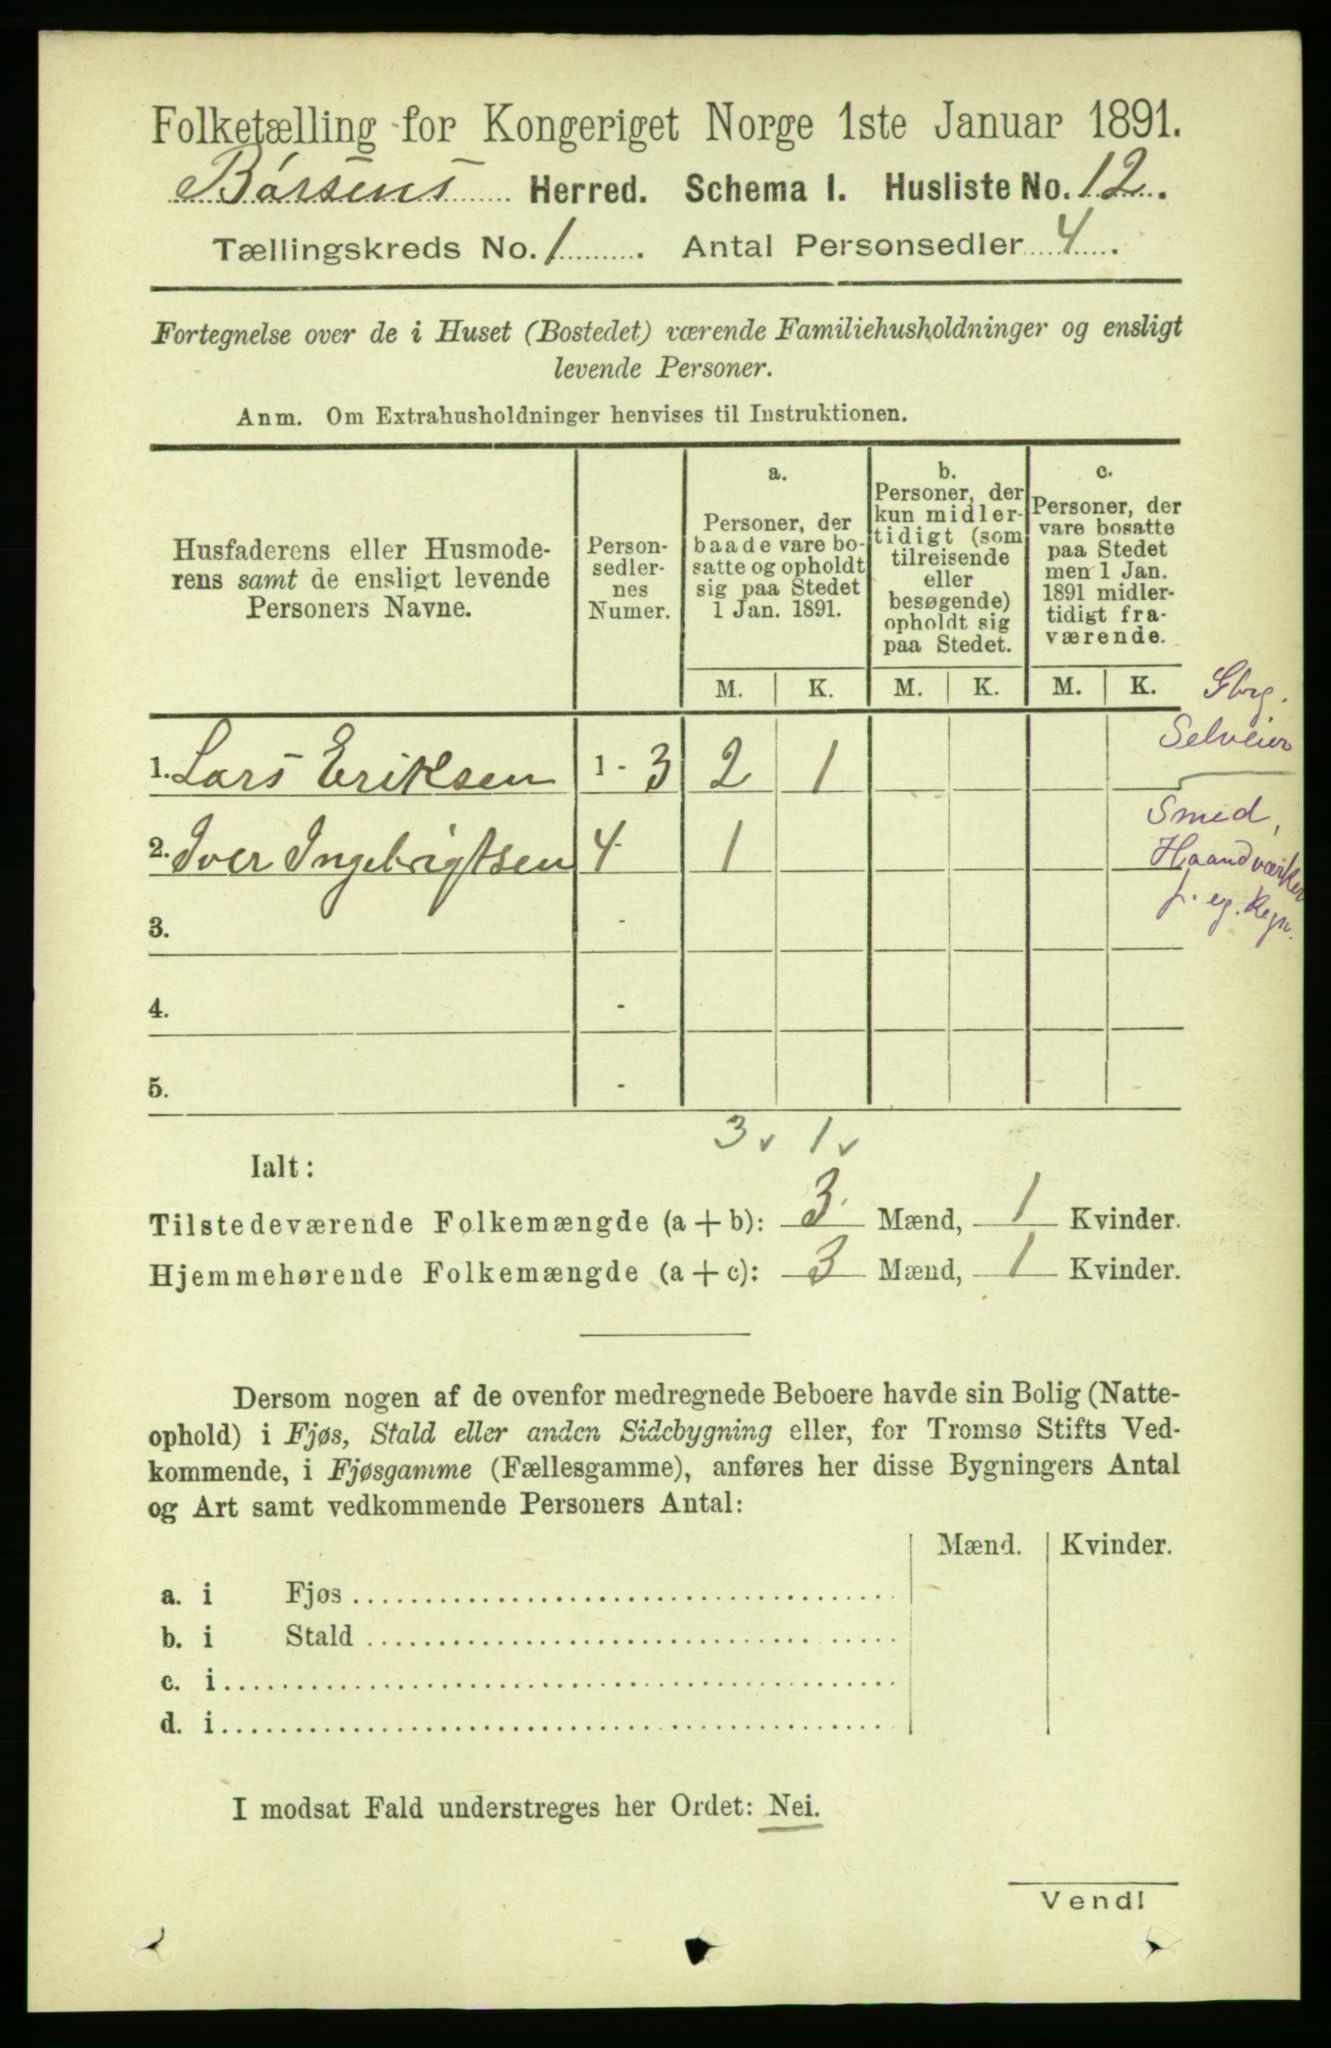 Folketælling for Kongeriget Norge 1ste Januar 1891.
Børsens Herred. Schema I. Husliste No. 12.
Tællingskreds No. 1. Antal Personsedler 4.
Fortegnelse over de i Huset (Bostedet) værende Familiehusholdninger og ensligt
levende Personer.
Anm. Om Extrahusholdninger henvises til Instruktionen.
Husfaderens eller Husmode-
rens samt de ensligt levende
Personers Navne.
Person-
sedler-
nes
Numer.
a.
Personer, der
baade vare bo-
satte og opholdt
sig paa Stedet
1 Jan. 1891.
b.
Personer, der
kun midler-
tidigt (som
tilreisende
eller
besøgende)
opholdt sig
paa Stedet.
c.
Personer, der
vare bosatte
paa Stedet
men 1 Jan.
1891 midler-
tidigt fra-
værende.
M. K. M. K. M. K.
Gbrg.
Selveier
1. Lars Eriksen 1 - 3 2 1
Smed,
Haandværker
f. eg. Regn.
2. Iver Ingebrigtsen 4 - 1
3. -
4. -
5. -
3 v 1 v
Ialt:
Tilstedeværende Folkemængde (a + b): 3 Mænd, 1 Kvinder.
Hjemmehørende Folkemængde (a + c): 3 Mænd, 1 Kvinder.
Dersom nogen af de ovenfor medregnede Beboere havde sin Bolig (Natte-
ophold) i Fjøs, Stald eller anden Sidebygning eller, for Tromsø Stifts Ved-
kommende, i Fjøsgamme (Fællesgamme), anføres her disse Bygningers Antal
og Art samt vedkommende Personers Antal:
Mænd. Kvinder.
a. i Fjøs
b. i Stald
c. i
d. i
I modsat Fald understreges her Ordet: Nei.
Vend!